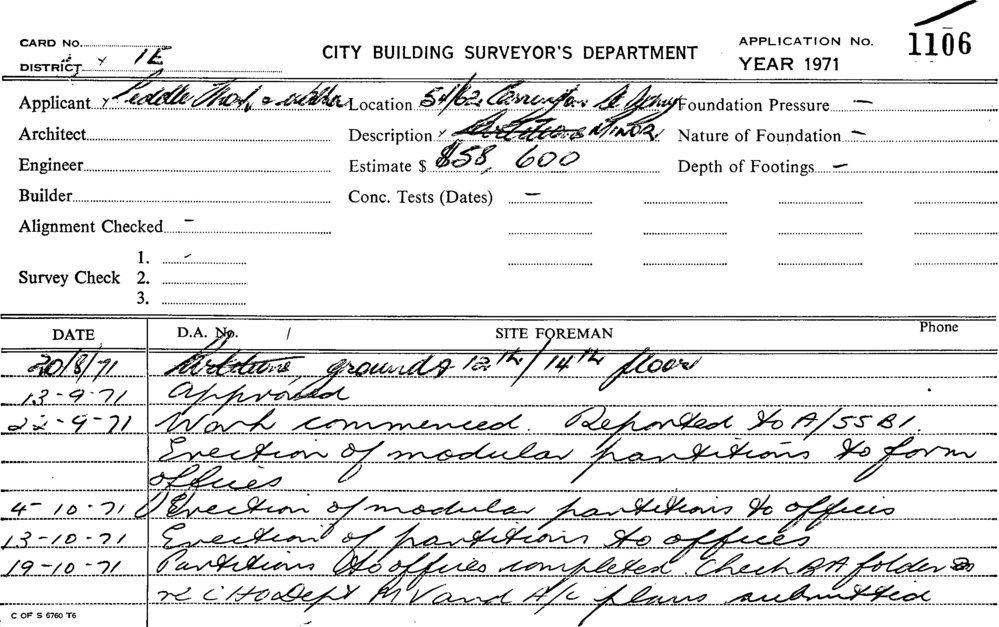 CARD No.
DISTRICT 1E
CITY BUILDING SURVEYOR'S DEPARTMENT
APPLICATION No. 1106
YEAR 1971
Applicant Peddle Thorp & Walker Location 54/62 Carrington St Sydney Foundation Pressure —
Architect Description Partitions MINOR Nature of Foundation —
Engineer Estimate $ $58,600 Depth of Footings —
Builder Conc. Tests (Dates) —
Alignment Checked —
Survey Check 1.
2.
3.
DATE D.A. No. / SITE FOREMAN Phone
20/8/71 Partitions, ground & 12th/14th floor
13-9-71 Approved
22-9-71 Work commenced. Reported to A/SSBI.
Erection of modular partitions to form
offices
4-10-71 Erection of modular partitions to offices
13-10-71 Erection of partitions to offices
19-10-71 Partitions to offices completed. Check BA folder
Dept MV and A/C plans submitted
C OF S 6760 T6